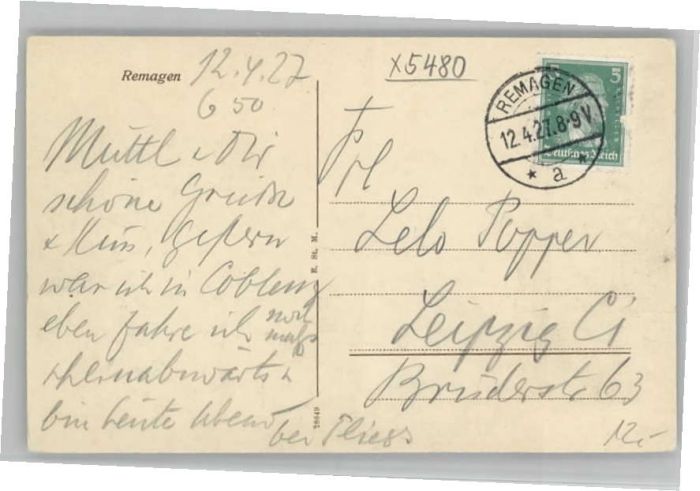 Remagen
12.4.27
6 50
Muttl u Dir
schöne Grüße
& Kuss, gestern
war ich in Coblenz
eben fahre ich noch
mals
rheinabwärts &
bin heute Abend
bei Fliess
E. St. M.
28649
X5480
REMAGEN
12.4.27.8-9V
* a
5
Deutsches Reich
Frl
Lelo Popper
Leipzig C1
Brüderstr 63
12.-